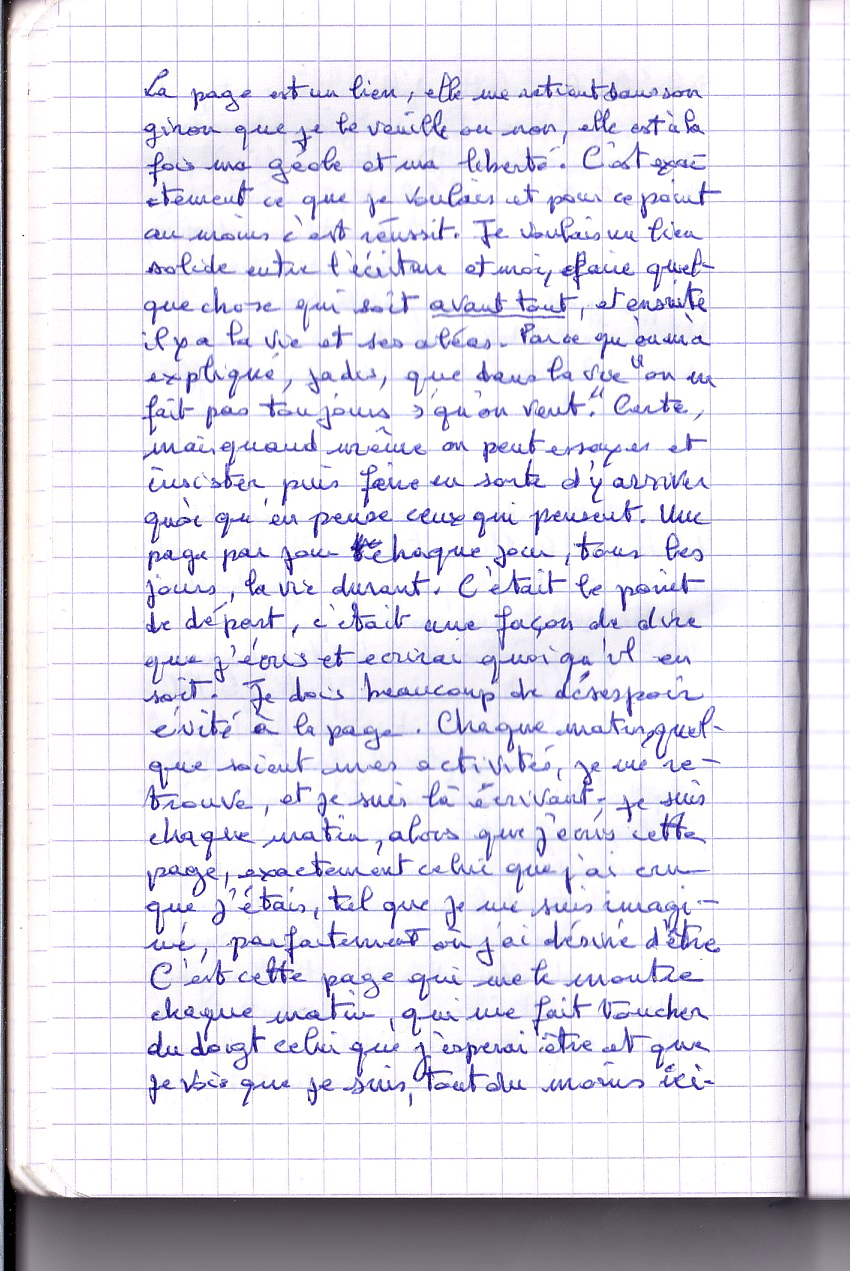 La page est un lien, elle me retient dans son
giron que je le veuille ou non, elle est à la
fois ma geôle et ma liberté. C'est exac-
tement ce que je voulais et pour ce point
au moins c'est réussit. Je voulais un lien
solide entre l'écriture et moi, faire quel-
que chose qui soit avant tout, et ensuite
il y a la vie et ses aléas. Parce qu'on m'a
expliqué, jadis, que dans la vie "on ne
fait pas toujours s'qu'on veut." Certe,
mais quand même on peut essayer et
insister puis faire en sorte d'y arriver
quoi qu'en pense ceux qui pensent. Une
page par jour chaque jour, tous les
jours, la vie durant. C'était le point
de départ, c'était une façon de dire
que j'écris et ecrirai quoiqu'il en
soit. Je dois beaucoup de désespoir
évité à la page. Chaque matin, quel-
que soient mes activités, je me re-
trouve, et je suis là écrivant. je suis
chaque matin, alors que j'écris cette
page, exactement celui que j'ai cru
que j'étais, tel que je me suis imagi-
né, parfaitement où j'ai désiré d'être
C'est cette page qui me le montre
chaque matin, qui me fait toucher
du doigt celui que j'esperai être et que
je vois que je suis, tout du moins ici-